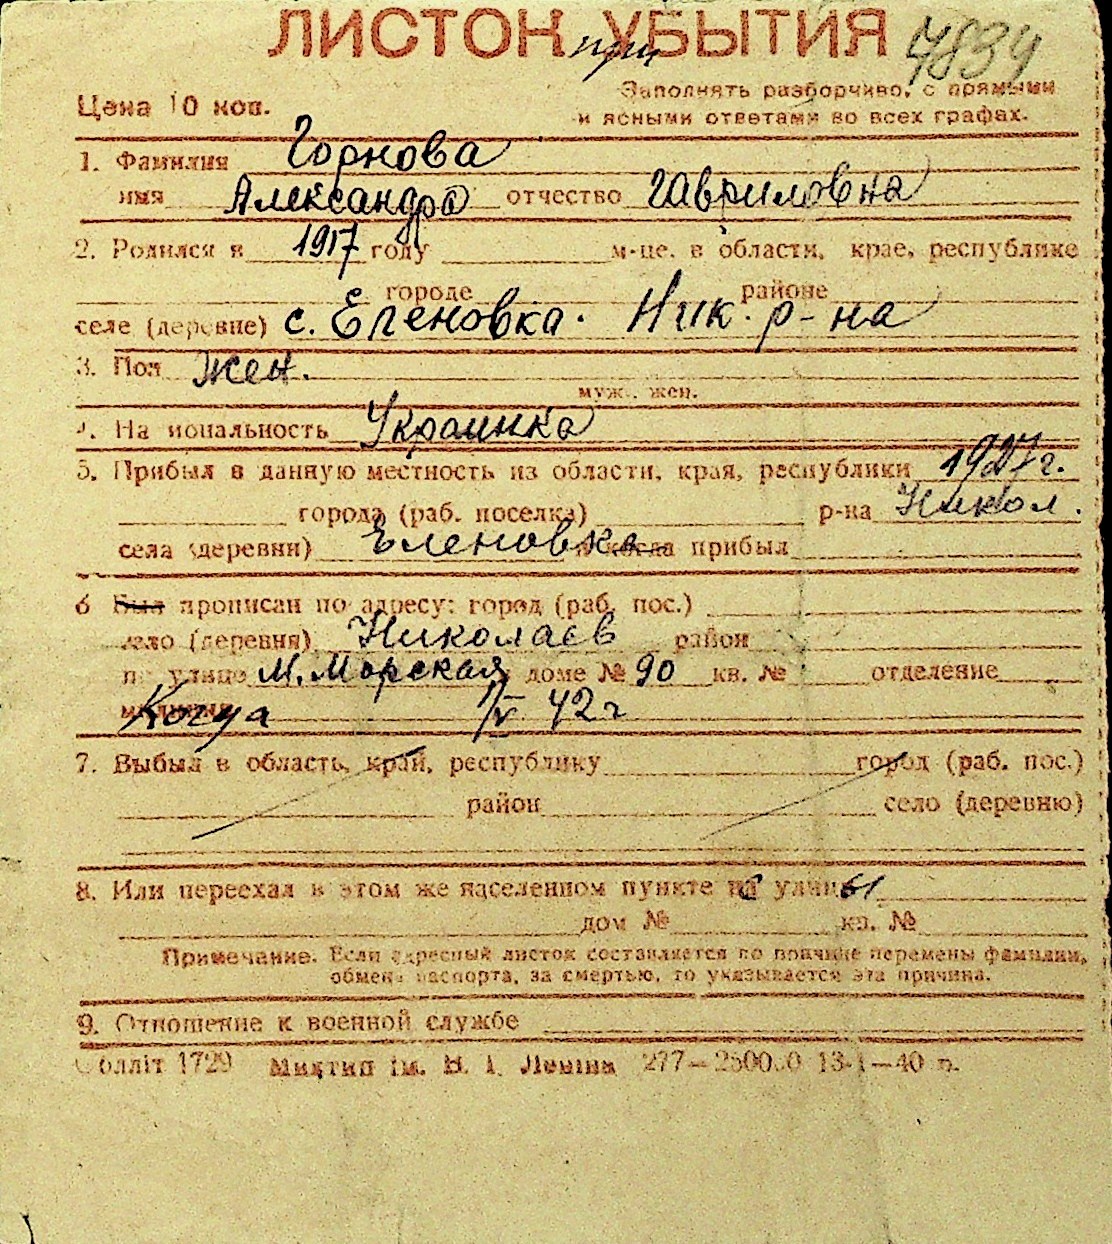 ЛИСТОК УБЫТИЯ
при
7834
Цена 10 коп.
Заполнять разборчиво, с прямыми
и ясными ответами во всех графах.
1. Фамилия Горнова
имя Александра отчество Гавриловна
2. Родился в 1917 году м-це. в области, крае, республике
городе районе
селе (деревне) с. Еленовка. Ник. р-на
3. Пол Жен.
муж., жен.
4. Национальность Украинка
5. Прибыл в данную местность из области, края, республики 1927 г.
города (раб. поселка) р-на Никол.
села (деревни) Еленовка и когда прибыл
6 Был прописан по адресу: город (раб. пос.)
село (деревня) Николаев район
по улице М. Морская доме № 90 кв. № отделение
милиции Когда 1/V 42 г
7. Выбыл в область, край, республику город (раб. пос.)
район село (деревню)
8. Или переехал в этом же населенном пункте с улицы
дом № кв. №
Примечание. Если адресный листок составляется по причине перемены фамилии,
обмена паспорта, за смертью, то указывается эта причина.
9. Отношение к военной службе
Обллiт 1729 Миктип iм. В. I. Ленiна 277—250000 13-1—40 р.